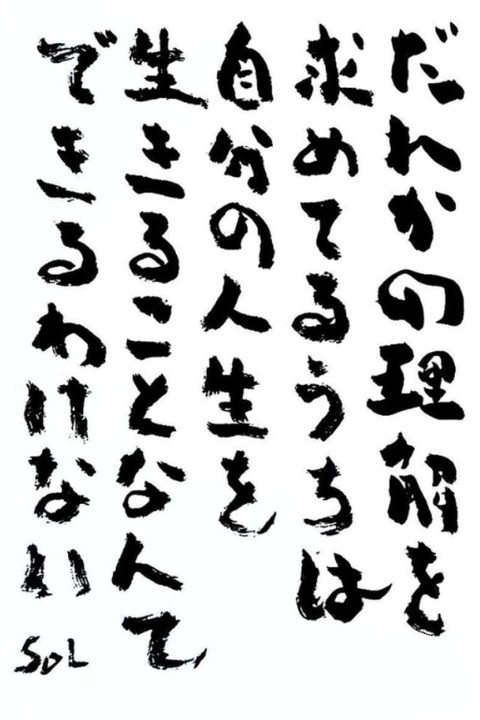 だれかの理解を
求めてるうちは
自分の人生を
生きることな人て
できるわけない
SOL